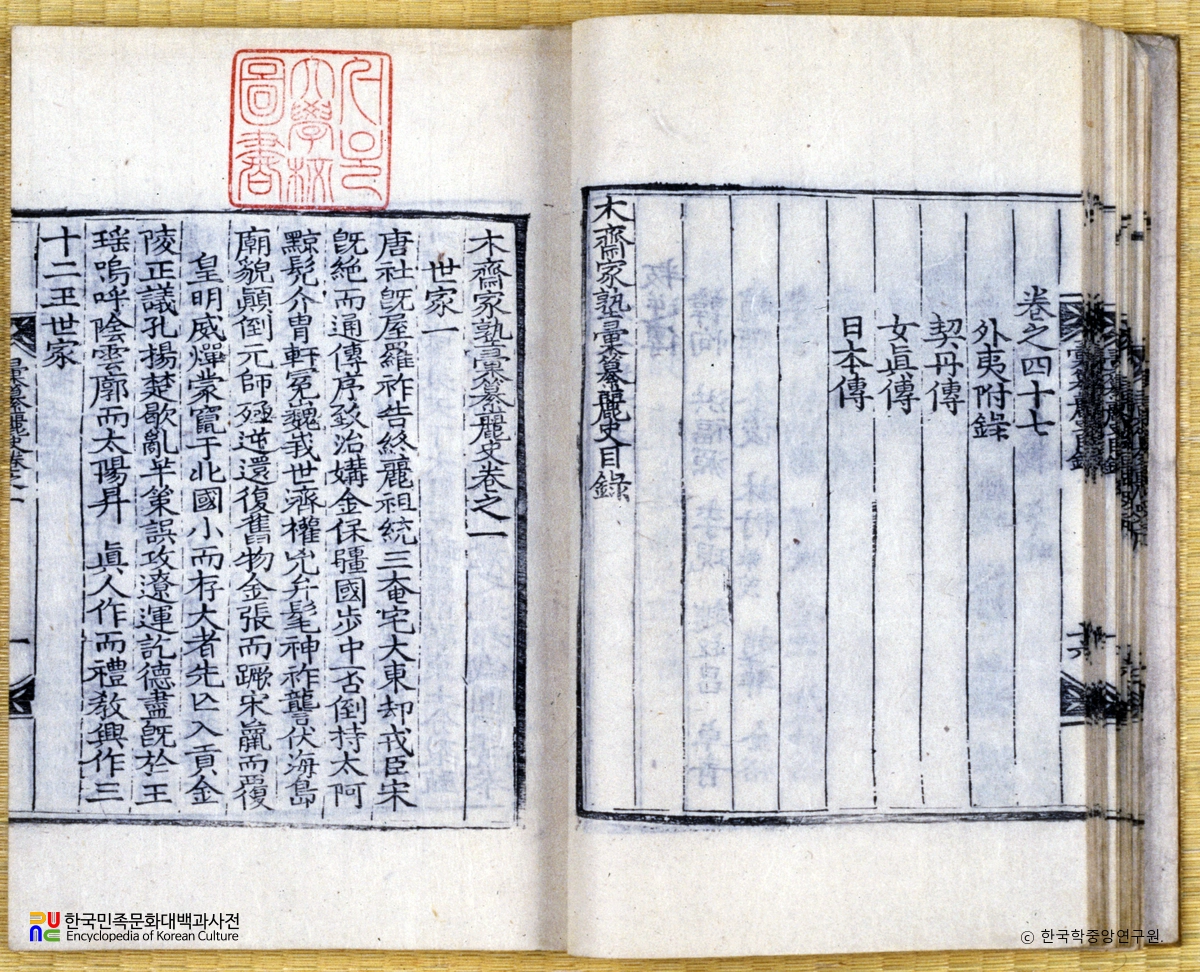 卷之四十七
外夷附錄
契丹傳
女眞傳
日本傳
木齋家塾彙纂麗史目錄
서울大學校圖書
木齋家塾彙纂麗史卷之一
世家一
唐社旣屋羅祚告終麗祖統三奄宅大東却戎臣宋
旣絶而通傳序致治媾金保疆國步中否倒持太阿
黥髡介冑軒冕巍峩世濟權兇弁髦神祚讋伏海島
廟貌顚倒元師殛逆還復舊物金張而蹶宋羸而覆
皇明威燀蒙竄于北國小而存大者先亾入貢金
陵正議孔揚楚歇亂芉策誤攻遼運訖德盡旣於王
瑶嗚呼陰雲廓而太陽昇 眞人作而禮敎興作三
十二王世家
한국민족문화대백과사전
Encyclopedia of Korean Culture
ⓒ 한국학중앙연구원.